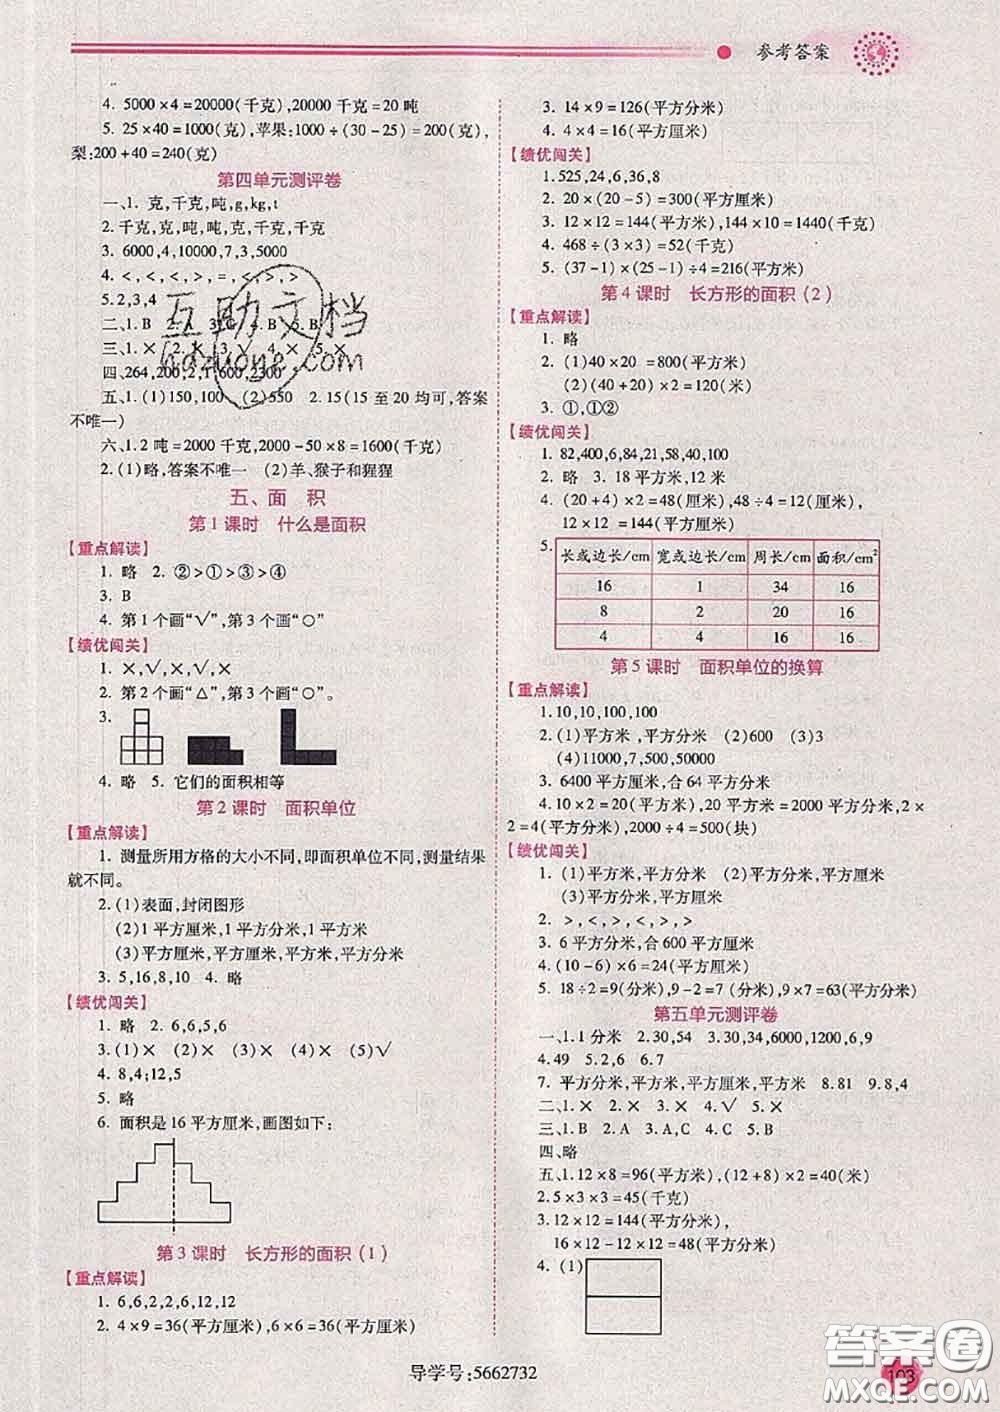 参考答案
4. 5000×4=20000(千克),20000千克=20吨
5. 25×40=1000(克),苹果:1000÷(30-25)=200(克),
梨:200+40=240(克)
第四单元测评卷
一、1. 克,千克,吨,g,kg,t
2. 千克,克,吨,吨,克,千克,千克
3. 6000,4,10000,7,3,5000
4. <,<,<,>,=,<,>,>
5.2,3,4
二、1.B 2.A 3.C 4.B 5.B
三、1.× 2.× 3.√ 4.× 5.×
四、264,200,2,1,600,2300
五、1.(1)150,100 (2)550 2.15(15至20均可,答案
不唯一)
六、1.2吨=2000千克,2000-50×8=1600(千克)
2.(1)略,答案不唯一 (2)羊、猴子和猩猩
五、面 积
第1课时 什么是面积
【重点解读】
1. 略 2. ②>①>③>④
3. B
4. 第1个画“√”,第3个画“○”
【绩优闯关】
1. ×,√,×,×,√
2. 第2个画“△”,第3个画“○”
3.
4. 略 5. 它们的面积相等
第2课时 面积单位
【重点解读】
1. 测量所用方格的大小不同,即面积单位不同,测量结果
就不同。
2.(1)表面,封闭图形
(2)1平方厘米,1平方分米,1平方米
(3)平方厘米,平方厘米,平方米,平方分米
3. 5,16,8,10 4. 略
【绩优闯关】
1. 略 2. 6,6,5,6
3.(1)× (2)× (3)× (4)× (5)√
4. 8,4;12,5
5. 略
6. 面积是16平方厘米,画图如下:
第3课时 长方形的面积(1)
【重点解读】
1. 6,6,2,2,6,12,12
2. 4×9=36(平方厘米),6×6=36(平方厘米)
3. 14×9=126(平方分米)
4. 4×4=16(平方厘米)
【绩优闯关】
1.525,24,6,36,8
2. 20×(20-5)=300(平方厘米)
3. 12×12=144(平方米),144×10=1440(千克)
4. 468÷(3×3)=52(千克)
5. (37-1)×(25-1)÷4=216(平方厘米)
第4课时 长方形的面积(2)
【重点解读】
1. 略
2. (1)40×20=800(平方米)
(2)(40+20)×2=120(米)
3. ①,①②
【绩优闯关】
1. 82,400,6,84,21,58,40,100
2. 略 3. 18平方米,12米
4. (20+4)×2=48(厘米),48÷4=12(厘米),
12×12=144(平方厘米)
5. 长或边长/cm 宽或边长/cm 周长/cm 面积/cm²
16 1 34 16
8 2 20 16
4 4 16 16
第5课时 面积单位的换算
【重点解读】
1.10,10,100,100
2. (1)平方米,平方厘米 (2)600 (3)3
(4)11000,7,500,50000
3. 6400平方厘米,合64平方分米
4. 10×2=20(平方米),20平方米=2000平方分米,2×
2=4(平方分米),2000÷4=500(块)
【绩优闯关】
1. (1)平方米,平方分米 (2)平方米,平方厘米
(3)平方分米,平方厘米
2. >,<,>,<,>,>
3. 6平方分米,合600平方厘米
4. (10-6)×6=24(平方厘米)
5. 18÷2=9(分米),9-2=7(分米),9×7=63(平方分米)
第五单元测评卷
一、1.1分米 2.30,54 3.30,34,6000,1200,6,9
4.49 5.2,6 6.7
7. 平方分米,平方厘米,平方米 8.81 9.8,4
二、1.× 2.× 3.× 4.√ 5.×
三、1.B 2.A 3.A,C 4.C 5.B
四、略
五、1.12×8=96(平方米),(12+8)×2=40(米)
2.5×3×3=45(千克)
3.12×12=144(平方米),
16×12-12×12=48(平方米)
4. (1)
导学号:5662732
103
互助文档
答案圈
MXQE.COM